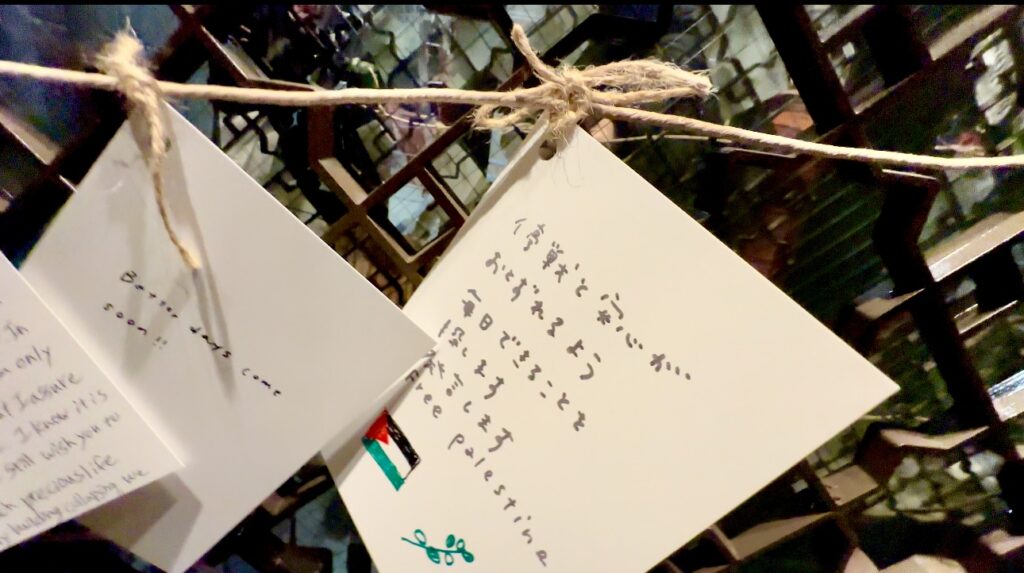 In
only
I assure
I know it is
still wish you to
precious life
building collapsing we
Better days come
soon!!
停戦と安心が…
おとずれるよう
毎日できることを
探します
します
Free palestine